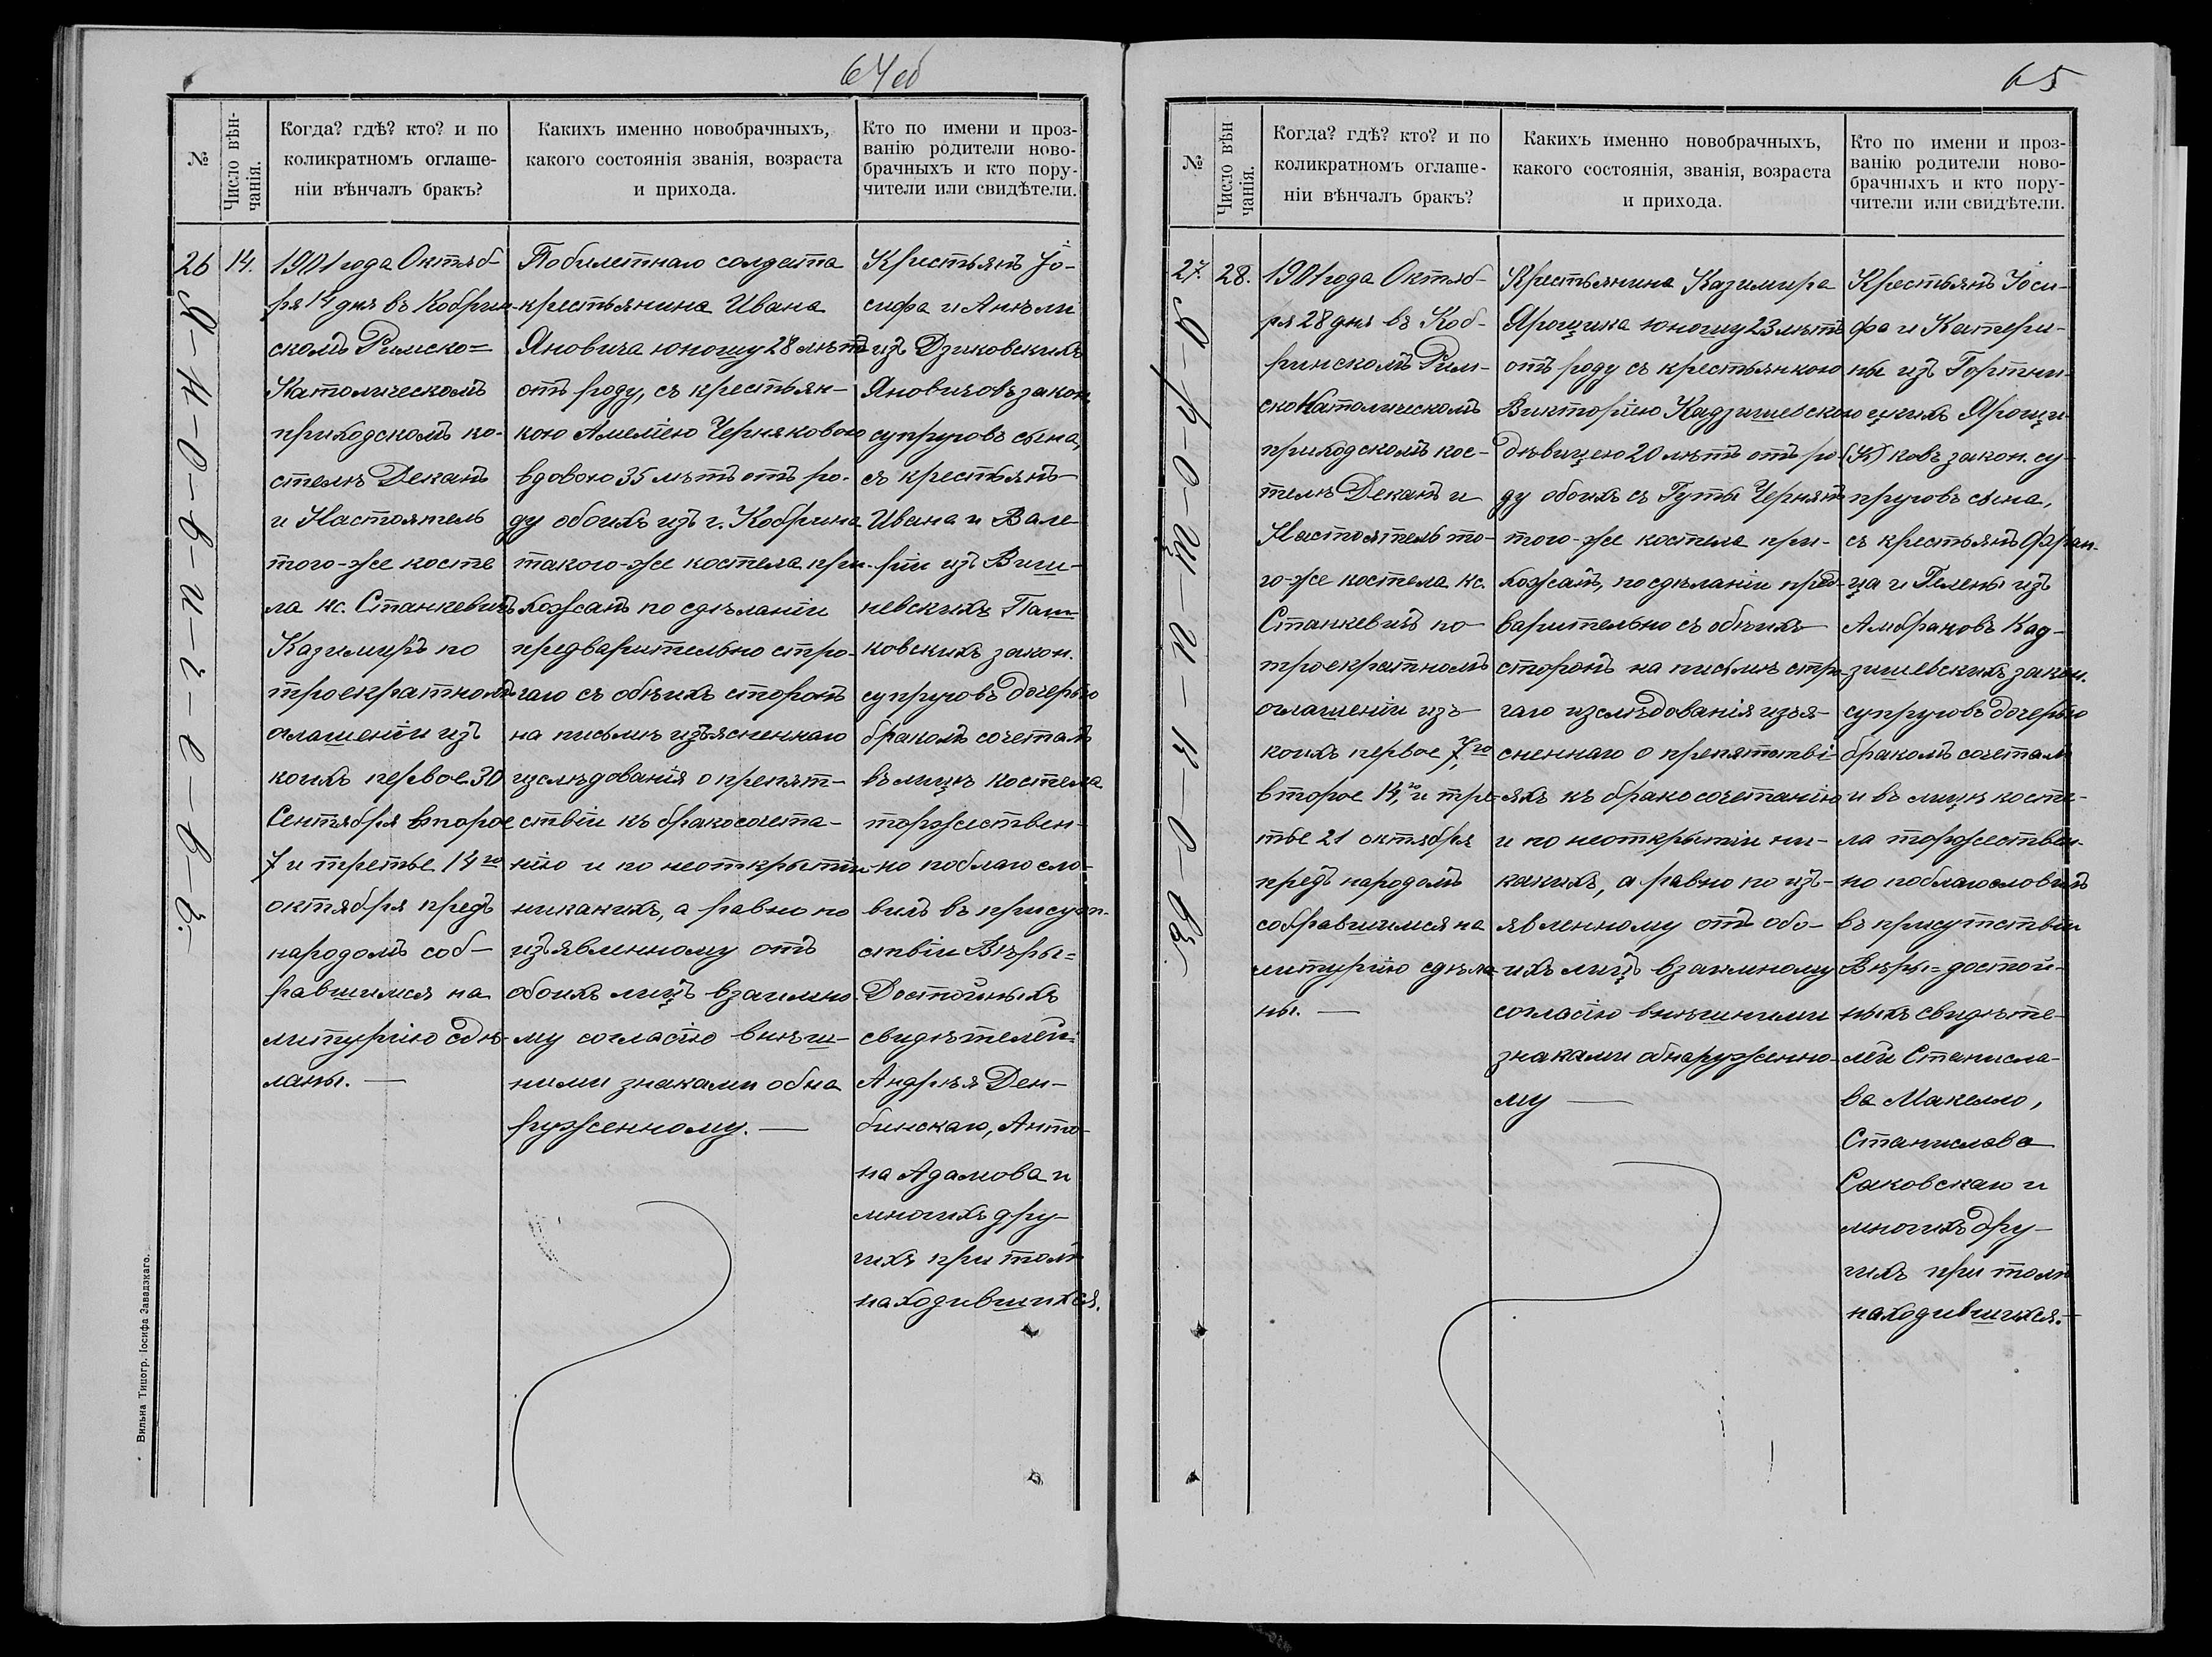 64об
№
Число вѣн-
чанія.
Когда? гдѣ? кто? и по
коликратномъ оглаше-
ніи вѣнчалъ бракъ?
Какихъ именно новобрачныхъ,
какого состоянія званія, возраста
и прихода.
Кто по имени и проз-
ванію родители ново-
брачныхъ и кто пору-
чители или свидѣтели.
26
Я-н-о-в-и-ч-е-в-ъ.
14.
1901 года Октяб-
ря 14 дня въ Кобрин-
скомъ Римско=
Католическомъ
приходскомъ ко-
стелѣ Деканъ
и Настоятель
того-же косте
ла кс. Станкевичъ
Казимиръ по
троекратномъ
оглашеніи изъ
коихъ первое 30
Сентября второе
7 и третье 14го
октября предъ
народомъ соб-
равшимся на
литургію сдѣ-
ланы. —
Побилетнаго солдата
крестьянина Ивана
Яновича юношу 28 лѣтъ
отъ роду, съ крестьян-
кою Амеліею Черняковою
вдовою 35 лѣтъ отъ ро-
ду обоихъ изъ г. Кобрина
такого-же костела при-
хожанъ по сдѣланіи
предварительно стро-
гаго съ обѣихъ сторонъ
на письмѣ изъясненнаго
изслѣдованія о препят-
ствіи къ бракосочета-
нію и по неоткрытіи
никакихъ, а равно по
изъявленному отъ
обоихъ лицъ взаимно-
му согласію внѣш-
ними знаками обна
руженному. —
Крестьянъ Іо-
сифа и Анѣли
изъ Дзиковскихъ
Яновичовъ закон.
супруговъ сына,
съ крестьянъ
Ивана и Вале-
ріи изъ Виш-
невскихъ Паш-
ковскихъ закон.
супруговъ дочерью
бракомъ сочеталъ
въ лицѣ костела
торжествен-
но поблагосло-
вилъ въ присут-
ствіи Вѣры=
Достойныхъ
свидѣтелей:
Андрея Ден-
бинскаго, Анто-
на Адамова и
многихъ дру-
гихъ при томъ
находившихся.
Вильна Типогр. Іосифа Завадзкаго.
65
№
Число вѣн
чанія.
Когда? гдѣ? кто? и по
коликратномъ оглаше-
ніи вѣнчалъ бракъ?
Какихъ именно новобрачныхъ,
какого состоянія, званія, возраста
и прихода.
Кто по имени и проз-
ванію родители ново-
брачныхъ и кто пору-
чители или свидѣтели.
27.
Я-р-о-щ-и-к-о-въ.
28.
1901 года Октяб-
ря 28 дня въ Коб-
ринскомъ Рим-
ско Католическомъ
приходскомъ кос-
телѣ Деканъ и
Настоятель то-
го-же костела кс.
Станкевичъ по
троекратномъ
оглашеніи изъ
коихъ первое 7го,
второе 14,го и тре-
тье 21 октября
предъ народомъ
собравшимся на
литургію сдѣла-
ны. —
Крестьянина Казимира
Ярощика юношу 23 лѣтъ
отъ роду съ крестьянкою
Викторіею Кадзишевскою
дѣвицею 20 лѣтъ отъ ро-
ду обоихъ съ Гуты Чернянъ
того-же костела при-
хожанъ, по сдѣланіи пред-
варительно съ обѣихъ
сторонъ на письмѣ стро-
гаго изслѣдованія изъя-
сненнаго о препятстві-
яхъ къ бракосочетанію
и по неоткрытіи ни-
какихъ, а равно по изъ-
явленному отъ обо-
ихъ лицъ взаимному
согласію внѣшними
знаками обнаруженно-
му —
Крестьянъ Іоси-
фа и Катери-
ны изъ Гортни-
цкихъ Ярощи-
(К) ковъ закон. су-
пруговъ сына,
съ крестьянъ Фран-
ца и Гелены изъ
Амбраковъ Кад-
зишевскихъ закон.
супруговъ дочерью
бракомъ сочеталъ
и въ лицѣ косте-
ла торжествен-
но поблагословилъ
въ присутствіи
Вѣры=достой-
ныхъ свидѣте-
лей Станисла-
ва Макелло,
Станислава
Саковскаго и
многихъ дру-
гихъ при томъ
находившихся.